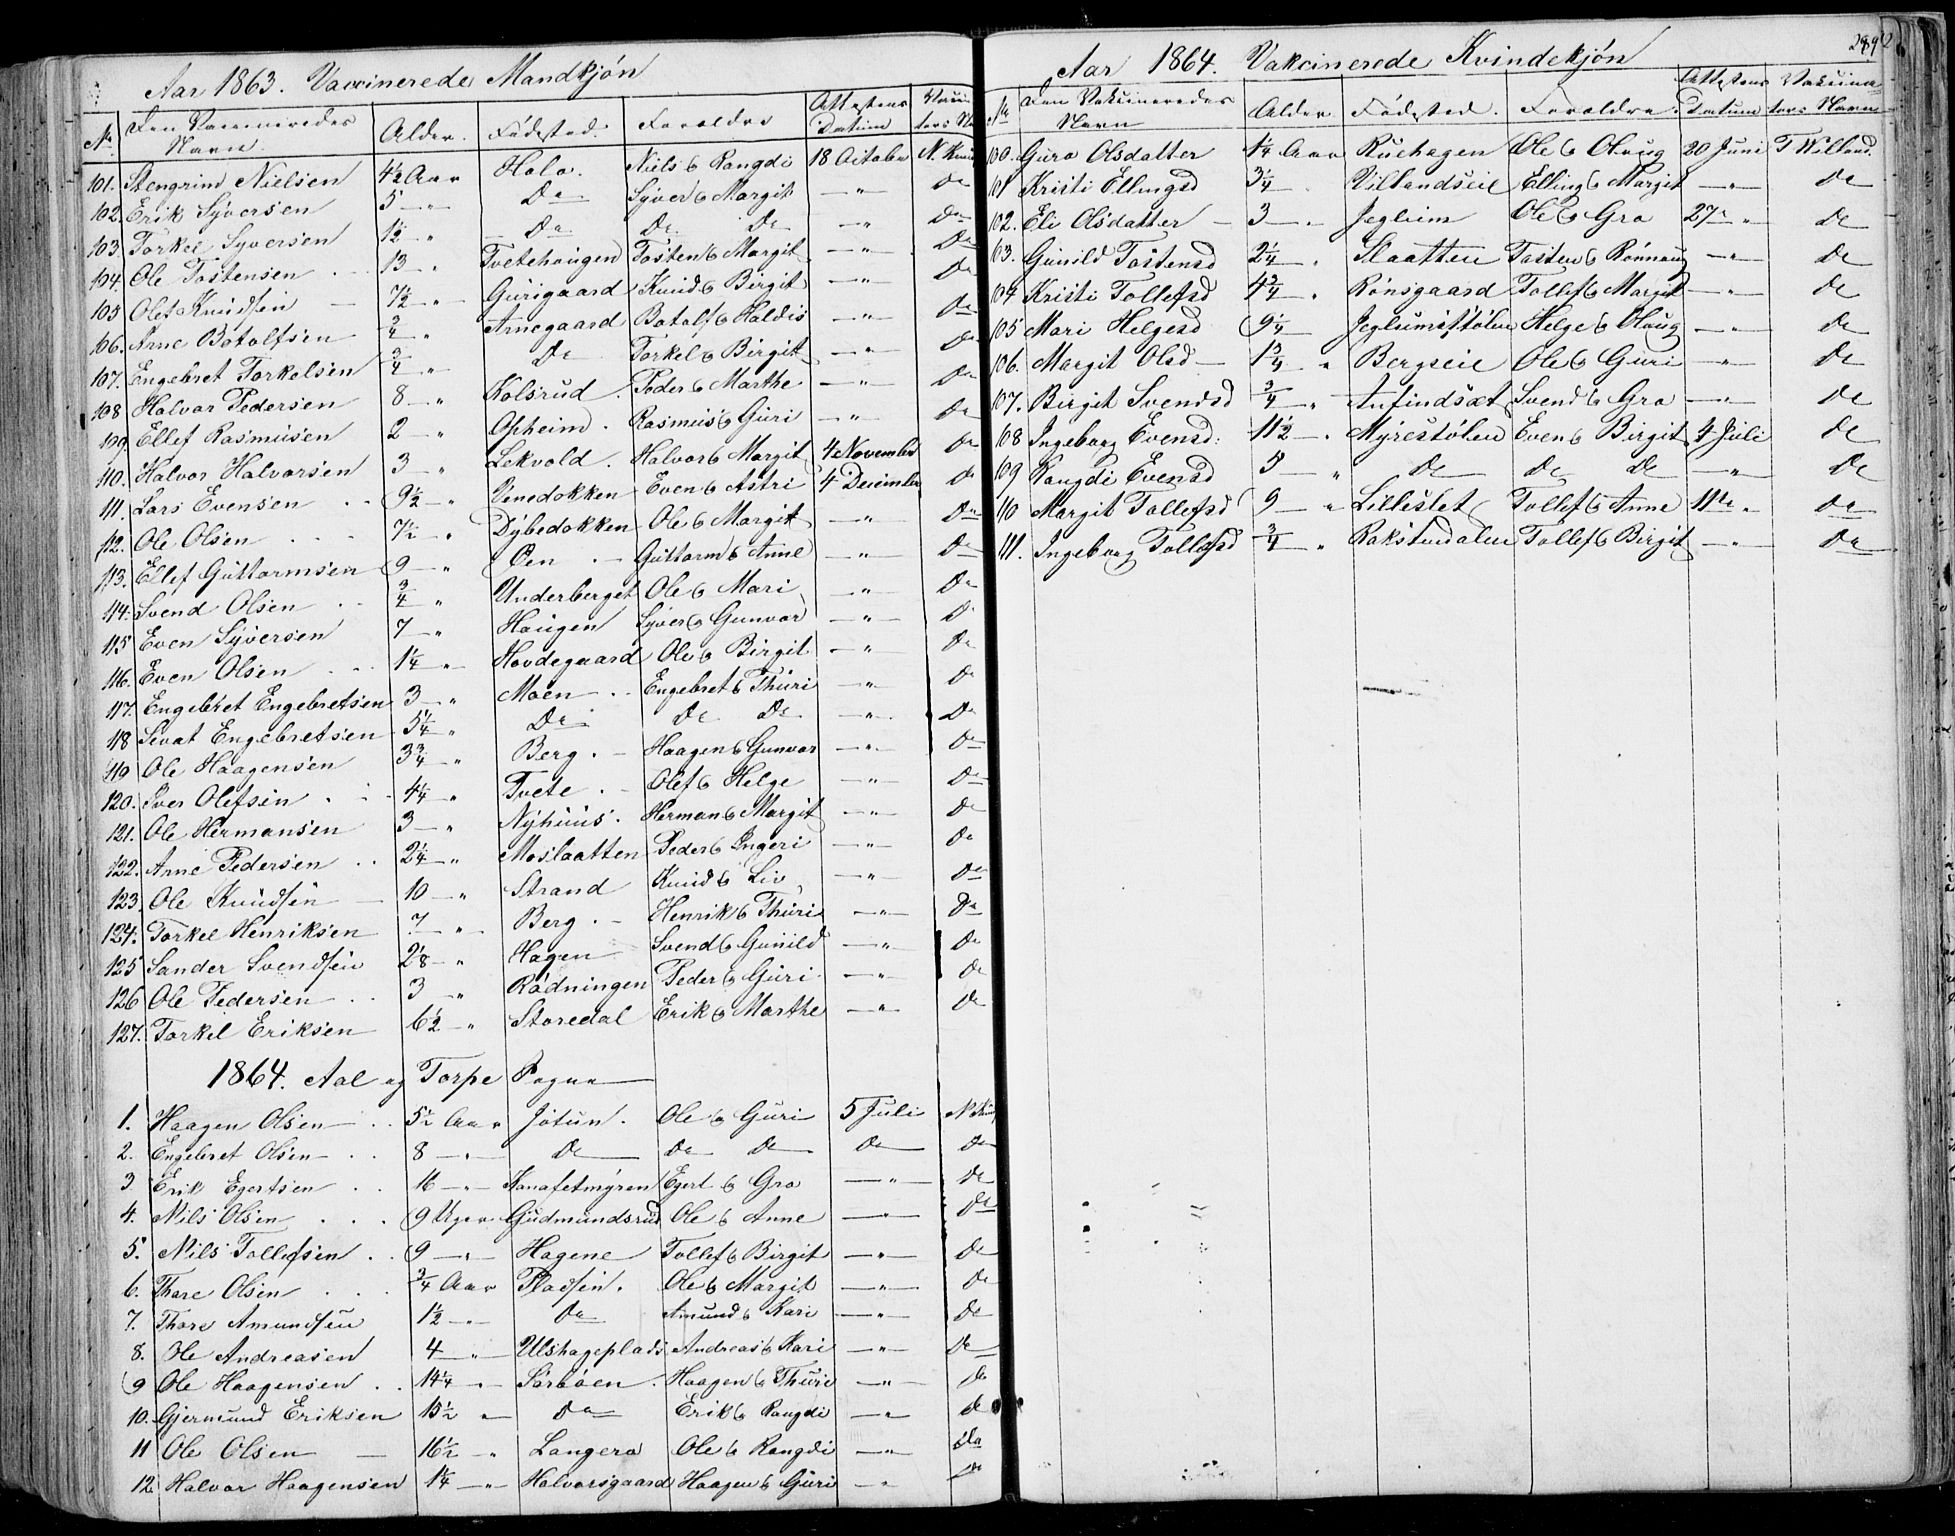 Aar 1863. Vaccinerede Mandkjøn
No Den Vaccineredes Navn Alder. Fødested. Forældre Attestens Datum
101. Stengrim Nielsen 4½ Aar Holo. Niels & Rangdi 18 October N. Knud
102. Erik Syversen 5 — " Do Syver & Margit — " — Do
103. Torkel Syversen 1½ " Do Do Do — " — Do
104. Ole Tostensen 13 " Tvetehougen Tosten & Margit — " — Do
105 Olef Knudsen 7½ — " Gurigaard Knud & Birgit — " — Do
106. Arne Botolfsen ¾ " Arnegaard Botolf & Haldis — " — Do
107. Engebret Torkelsen ¾ — " Do Torkel & Birgit — " — Do
108 Halvor Pedersen 8 — " Kolsrud. Peder & Marthe — " — Do
109. Ellef Rasmusen 2 — " Opheim. Rasmus & Guri — " — Do
110. Halvor Halvorsen 3 — " Lekvold. Halvor & Margit 4 November Do
111. Lars Evensen 9½ — " Vinedokken Even & Astri 4 December Do
112. Ole Olsen 7½ — " Dybedokken Ole & Margit — " — Do
113. Ellef Guttormsen 9 — " Øen Guttorm & Anne — " — Do
114. Svend Olsen ¾ " Underberget Ole & Mari — " — Do
115 Even Syversen 7 — " Haugen Syver & Gunvor — " — Do
116. Even Olsen 1¼ — " Hovdegaard Ole & Birgit — " — Do
117. Engebret Engebretsen 3 — " Moen Engebret & Thuri — " — Do
118 Sevat Engebretsen 5¼ " Do Do Do — " — Do
119 Ole Haagensen 3¾ " Berg. Haagen & Gunvor — " — Do
120. Iver Olefsen 4¼ " Tvete. Olef & Helge — " — Do
121. Ole Hermansen 3 — " Nyhuus. Herman & Margit — " — Do
122. Arne Pedersen 2¼ — " Moslaatten Peder & Ingeri — " — Do
123. Ole Knudsen 10 — " Strand Knud & Liv — " — Do
124. Torkel Henriksen 7 — " Berg. Henrik & Thuri — " — Do
125 Sander Svendsen " Hagen Svend & Gunild — " — Do
126 Ole Pedersen 3 " Rødningen Peder & Guri — " — Do
127. Torkel Eriksen 6½ — " Storedal Erik & Marthe — " — Do
1864. Aal og Torpe Sogne
1. Haagen Olsen 5½ Aar Jøtun. Ole & Guri 5 Juli
2. Engebret Olsen 8 — " — Do Do Do Do Do
3 Erik Egertsen 16 — " Egert & Gro — " — Do
4. Nils Olsen 9 Uger Gudmundsrud Ole & Anne — " — Do
5. Nils Tollefsen 9 — " Hagene Tollef & Birgit — " — Do
6. Thore Olsen ¾ Aar Pladsen. Ole & Margit — " — Do
7. Thore Amundsen 1½ — " Do Amund & Kari — " — Do
8. Ole Andreasen 4 — " Ulshageplads Andreas & Kari — " — Do
9 Ole Haagensen 14¼ — " Sørbøen. Haagen & Thuri — " — Do
10. Gjermund Eriksen 15½ " Do Erik & Rangdi — " — Do
11 Ole Olsen 16½ — " Langero Ole & Rangdi — " — Do
12 Halvor Haagensen 1¼ — " Halvorsgaard Haagen & Guri " — Do
Aar 1864. Vakcinerede Kvindekjøn
No Den Vakcineredes Navn Alder Fødested. Forældre. Attestens Datum Vakcinatørs Navn
100. Guro Olsdatter 4¼ Aar Ruehagen Ole & Olaug 20 Juni T Willand.
101 Kristi Ellingsd 3¼ Villandseie Elling & Margit — " — Do
102. Eli Olsdatter 3 — " Jegleim Ole & Gro 27de " Do
103. Gunild Tostensd 2¼ " Slaatten Tosten & Rønnaug — " — Do
104 Kristi Tollefsd 4¾ — " Rønsgaard Tollef & Margit — " — Do
105 Mari Helgesd 9¼ — Jeglumsstølen Helge & Olaug — " — Do
106. Margit Olsd 1¾ — " Bergseie Ole & Guri " — Do
107. Birgit Svendsd ¾ — " Anfindsæt Svend & Gro — " — Do
108 Ingeborg Evensd: 11½ — " Myrestølen Even & Birgit 4 Juli Do
109 Rangdi Evensd 5 " Do Do Do — " — Do
110 Margit Tollefsd 9 — " Lilleslet Tollef & Anne 11te " Do
111. Ingeborg Tollefsd ¾ — " Rakstudalen Tollef & Birgit — " — Do